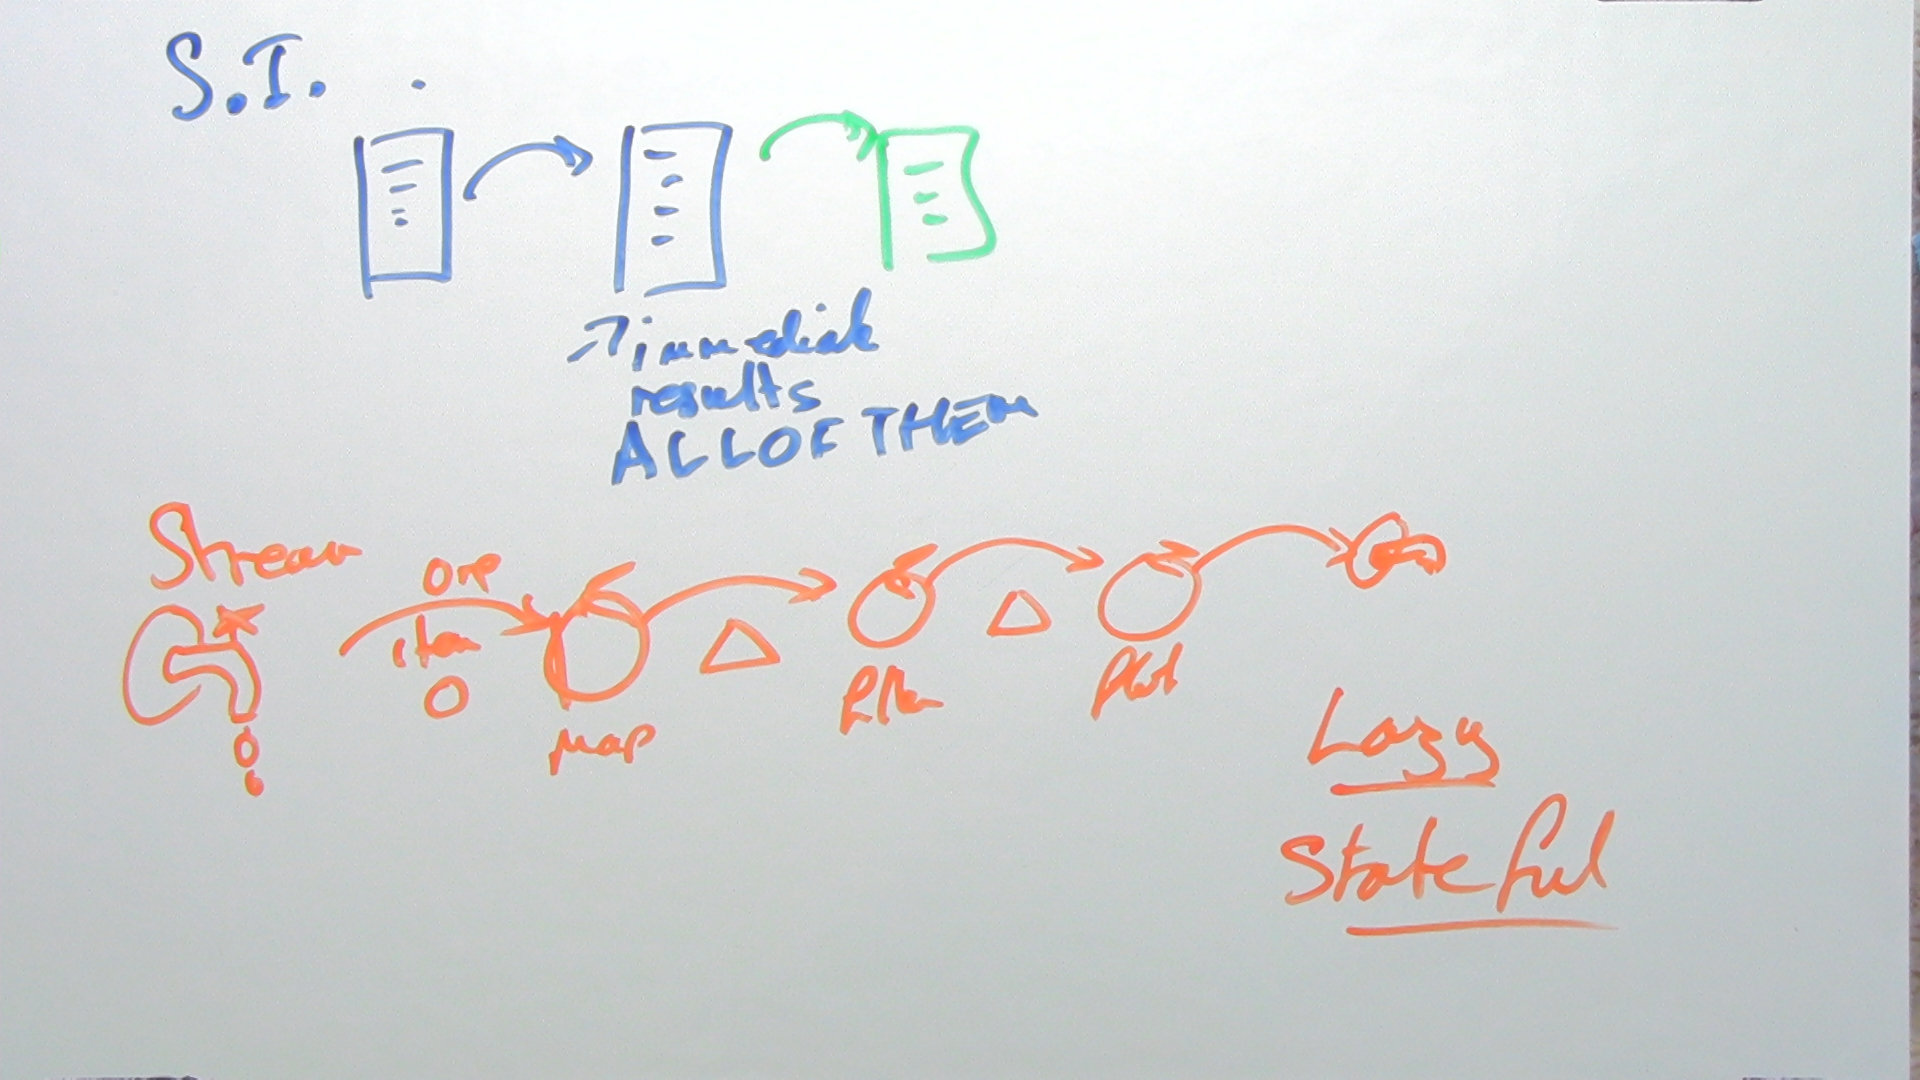 S.I.
immediate
results
ALL OF THEM
Stream
one
item
map
Lazy
Stateful